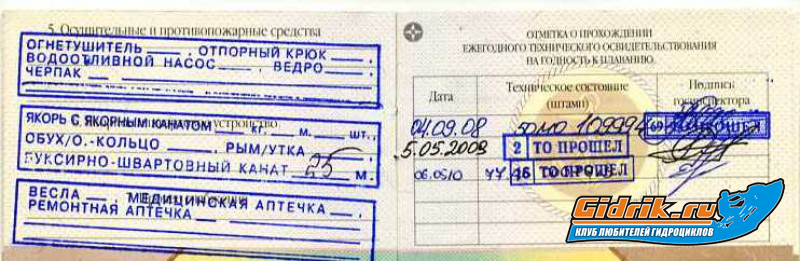 5. Осушительные и противопожарные средства
ОГНЕТУШИТЕЛЬ ____, ОТПОРНЫЙ КРЮК ___,
ВОДООТЛИВНОЙ НАСОС ___, ВЕДРО ___,
ЧЕРПАК ___.
ЯКОРЬ С ЯКОРНЫМ КАНАТОМ ___ кг. ___ м. ___ шт.,
ОБУХ/О.-КОЛЬЦО ___, РЫМ/УТКА ___,
БУКСИРНО-ШВАРТОВЫЙ КАНАТ 25 м.
ВЕСЛА ___, МЕДИЦИНСКАЯ АПТЕЧКА ___,
РЕМОНТНАЯ АПТЕЧКА ___
ОТМЕТКА О ПРОХОЖДЕНИИ
ЕЖЕГОДНОГО ТЕХНИЧЕСКОГО ОСВИДЕТЕЛЬСТВОВАНИЯ
НА ГОДНОСТЬ К ПЛАВАНИЮ
Дата
Техническое состояние
(штамп)
Подпись
госинспектора
04.09.08
5.05.2009
2 ТО ПРОШЕЛ
06.0510
ТО ПРОШЕЛ
Gidrik.ru
КЛУБ ЛЮБИТЕЛЕЙ ГИДРОЦИКЛОВ